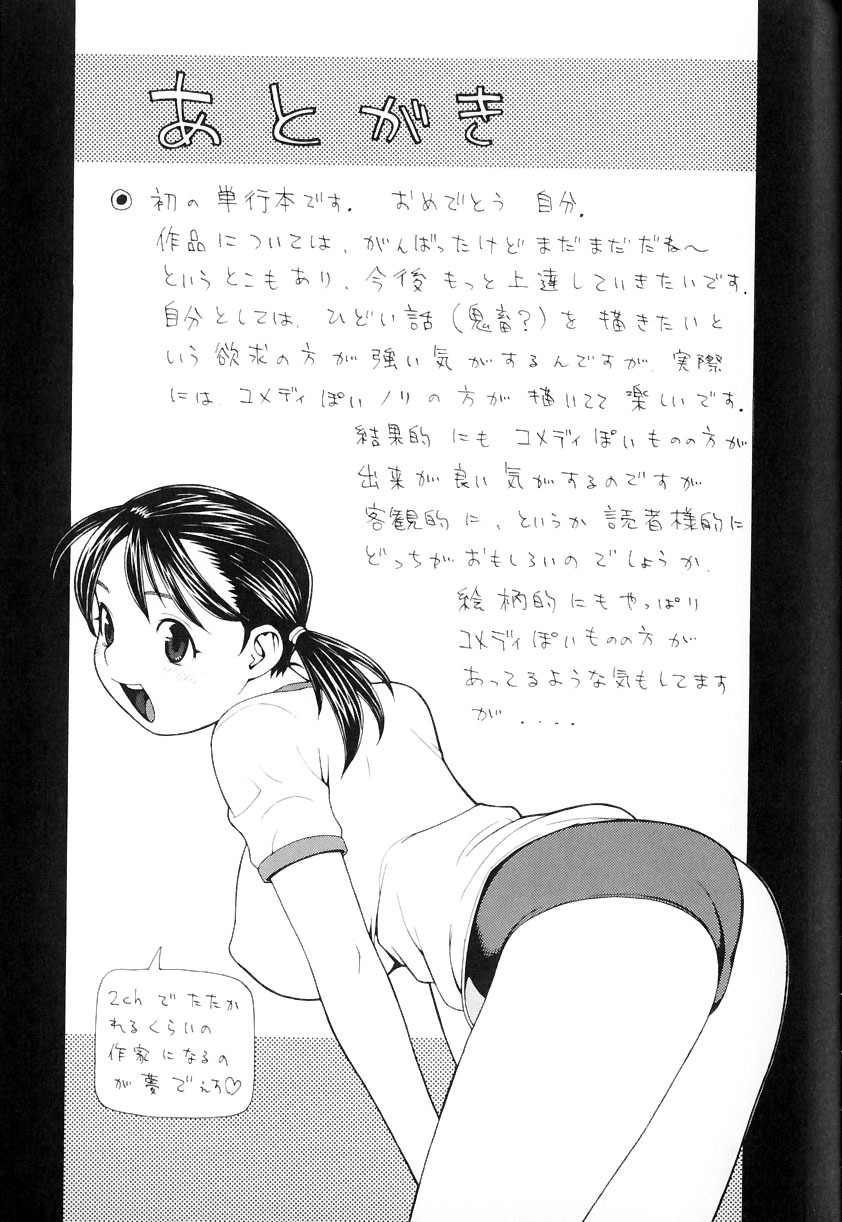 あとがき
初の単行本です. おめでとう 自分.
作品については、がんばったけどまだまだだね〜
というとこもあり、今後 もっと上達していきたいです.
自分としては、ひどい話(鬼畜?)を描きたいと
いう欲求の方が強い気がするんですが、実際
には、コメディぽいノリの方が描いてて楽しいです.
結果的にもコメディぽいものの方が
出来が良い気がするのですが
客観的に、というか読者様的に
どっちがおもしろいのでしょうか.
絵柄的にもやっぱり
コメディぽいものの方が
あってるような気もしてます
が....
2chでたたか
れるくらいの
作家になるの
が夢でぇす♡